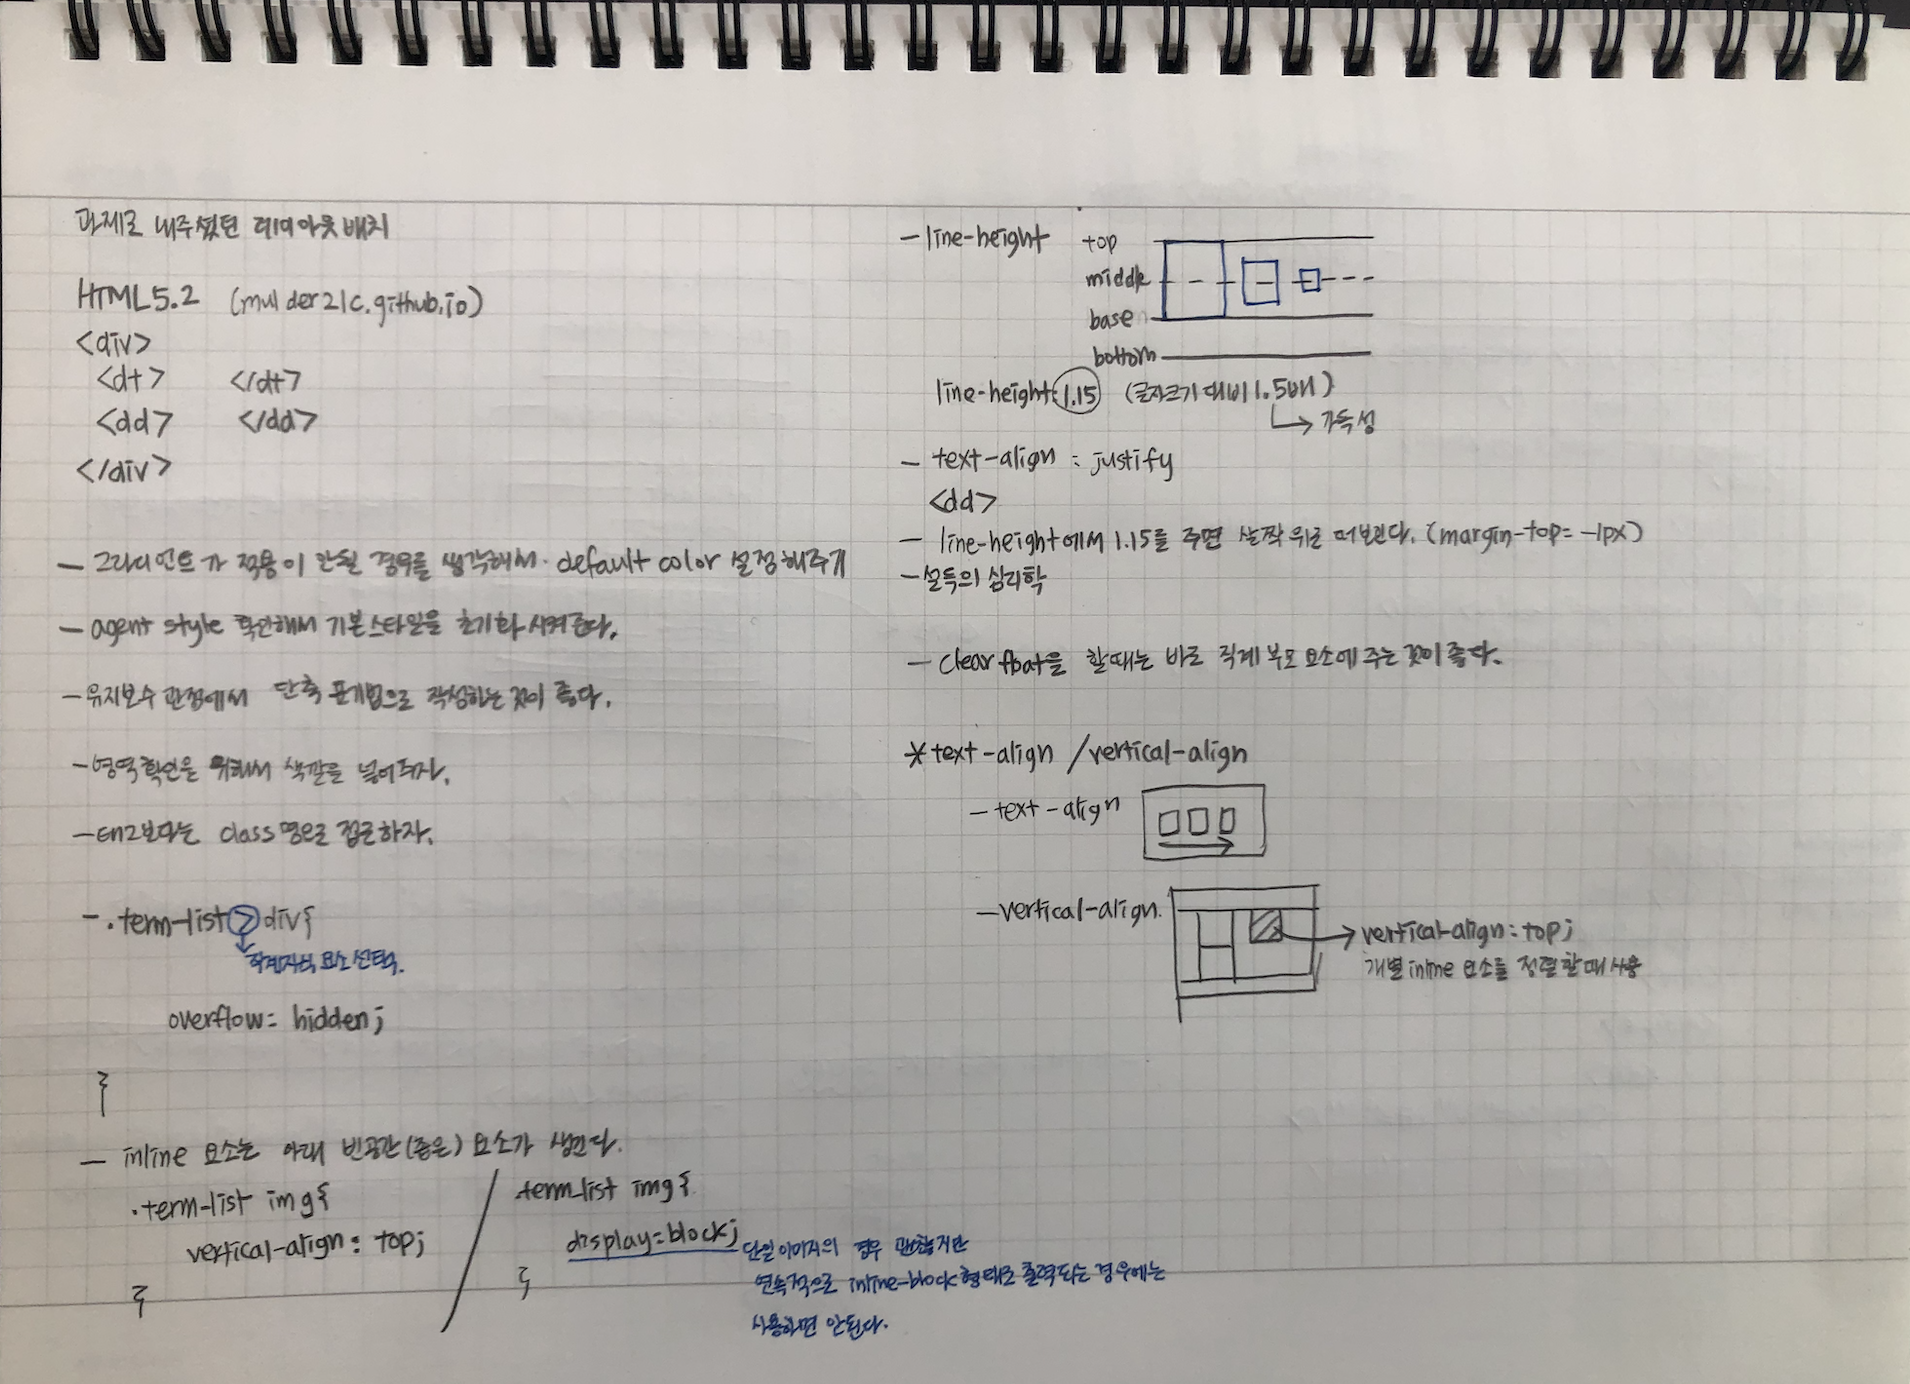 과제로 내주셨던 레이아웃 배치
HTML5.2 (mulder21c.github.io)
<div>
<dt> </dt>
<dd> </dd>
</div>
- 그라디언트가 적용이 안될 경우를 생각해서 default color 설정해주기
- agent style 확인해서 기본스타일을 초기화 시켜준다.
- 유지보수 관점에서 단축 표기법으로 작성하는 것이 좋다.
- 영역확인을 위해서 색깔을 넣어두자.
- 보다는 class명으로 접근하자.
- .term-list > div{
직계자식 요소 선택.
overflow: hidden;
}
- inline 요소는 아래 빈공간(좁은) 요소가 생긴다.
.term-list img{
vertical-align: top;
}
.term-list img{
display=block;
단일이미지의 경우 괜찮지만
연속적으로 inline-block형태로 출력되는 경우에는
사용하면 안된다.
}
- line-height
top
middle
base
bottom
line-height: 1.15 (글자크기 대비 1.5배)
가독성
- text-align : justify
<dd>
- line-height에서 1.15를 주면 살짝 위로 떠보인다. (margin-top= -1px)
- 설득의 심리학
- clear float을 할때는 바로 직계 부모 요소에 주는 것이 좋다.
* text-align / vertical-align
- text-align
- vertical-align.
vertical-align: top;
개별 inline 요소를 정렬할때 사용